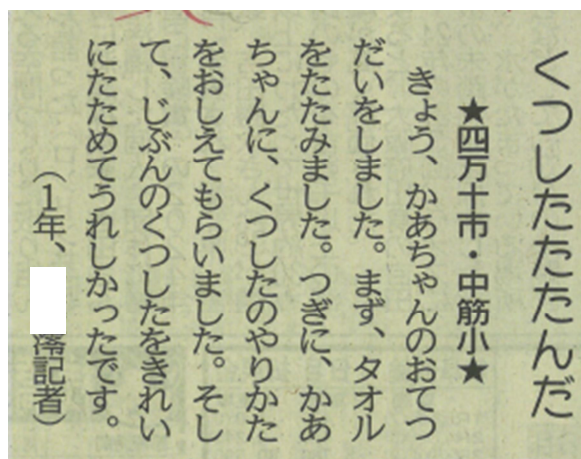 くつしたたたんだ
★四万十市・中筋小★
きょう、かあちゃんのおてつ
だいをしました。まず、タオル
をたたみました。つぎに、かあ
ちゃんに、くつしたのやりかた
をおしえてもらいました。そし
て、じぶんのくつしたをきれい
にたためてうれしかったです。
（１年、澪記者）